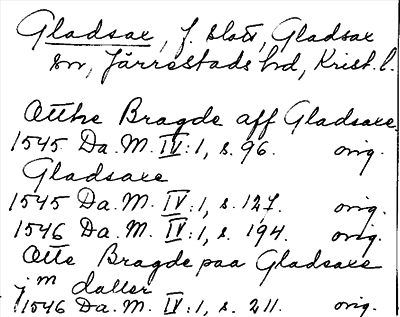 Gladsax, f. slott, Gladsax
sn, Järrestads hd, Krist. l.
Otthe Bragde aff Gladsaxe
1545 Da. M. IV:1, s. 96. orig.
Gladsaxe
1545 Da. M. IV:1, s. 127. orig.
1546 Da. M. IV:1, s. 194. orig.
Otte Bragde paa Gladsaxe
j m daller
1546 Da. M. IV:1, s. 211. orig.